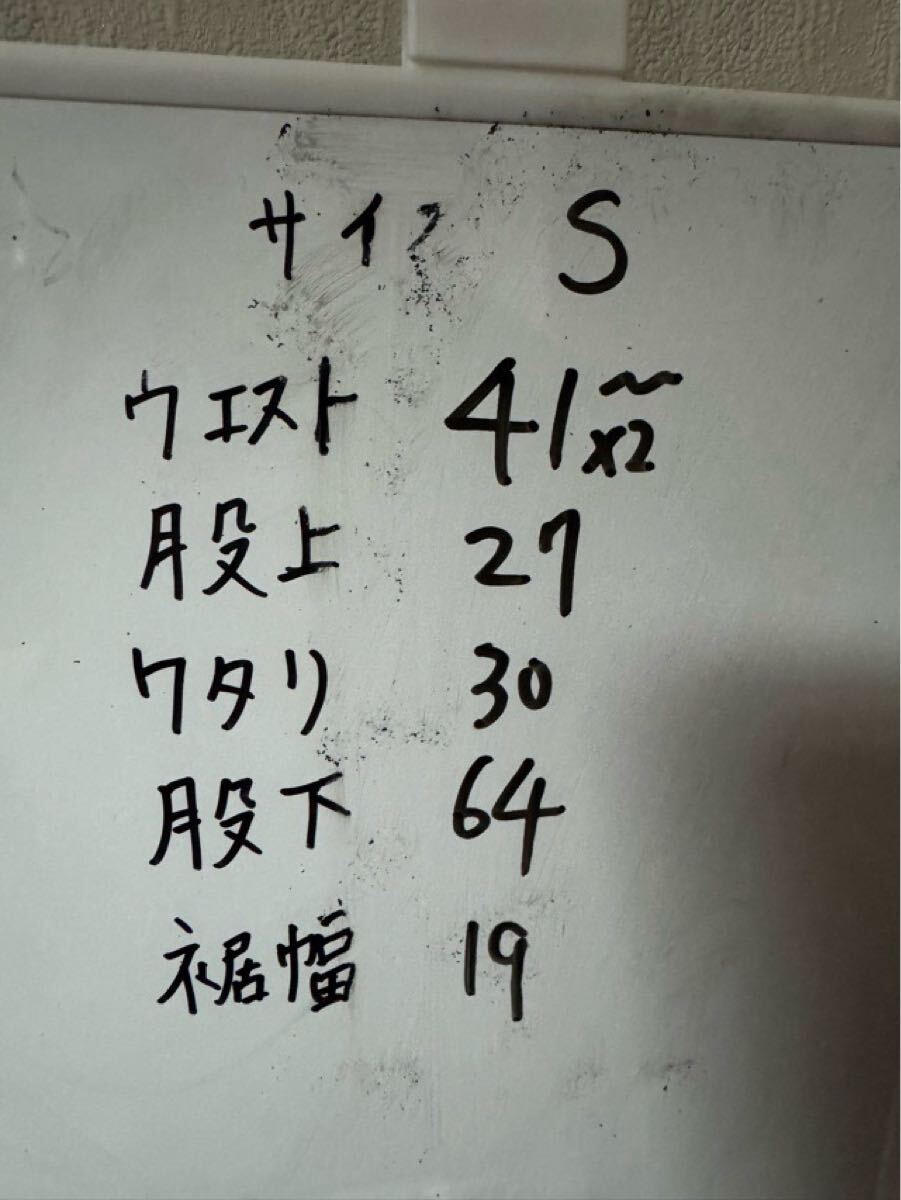 サイズ S
ウエスト 41〜x2
股上 27
ワタリ 30
股下 64
裾幅 19